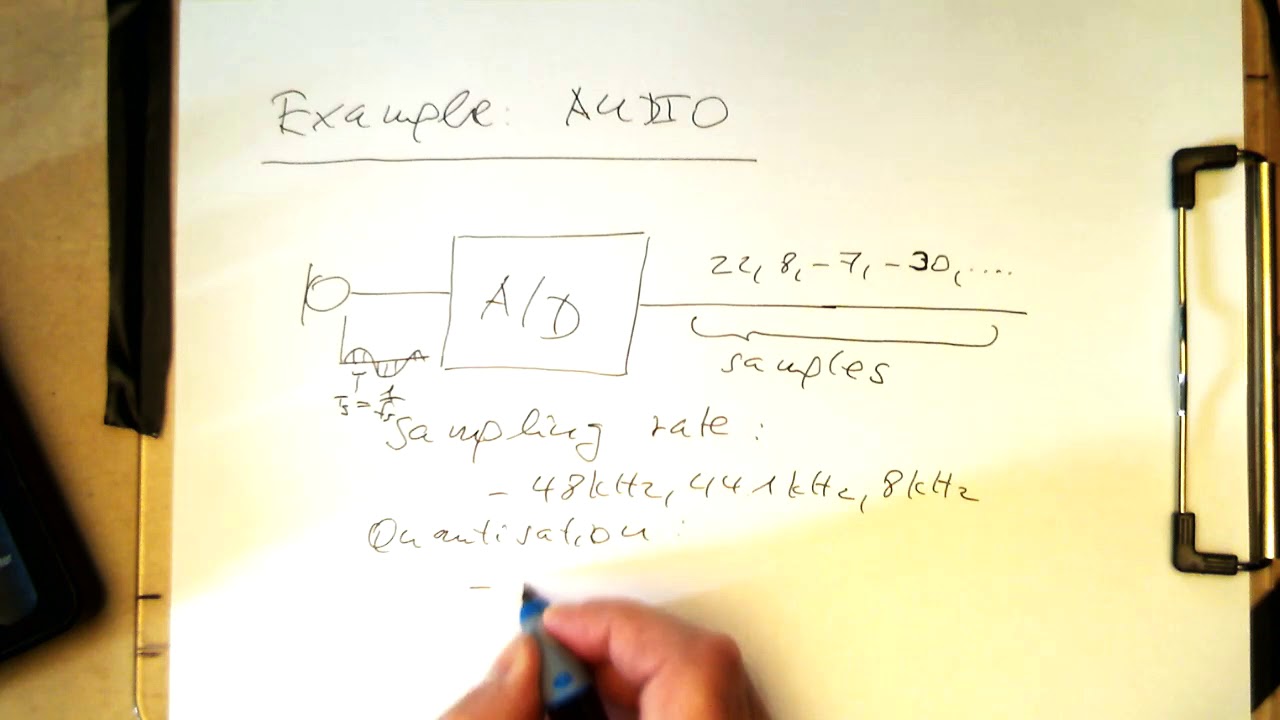 Example: AUDIO
22, 8, -7, -30, ....
A/D
samples
Ts = 1/fs
Sampling rate:
- 48kHz, 441kHz, 8kHz
Quantisation:
-